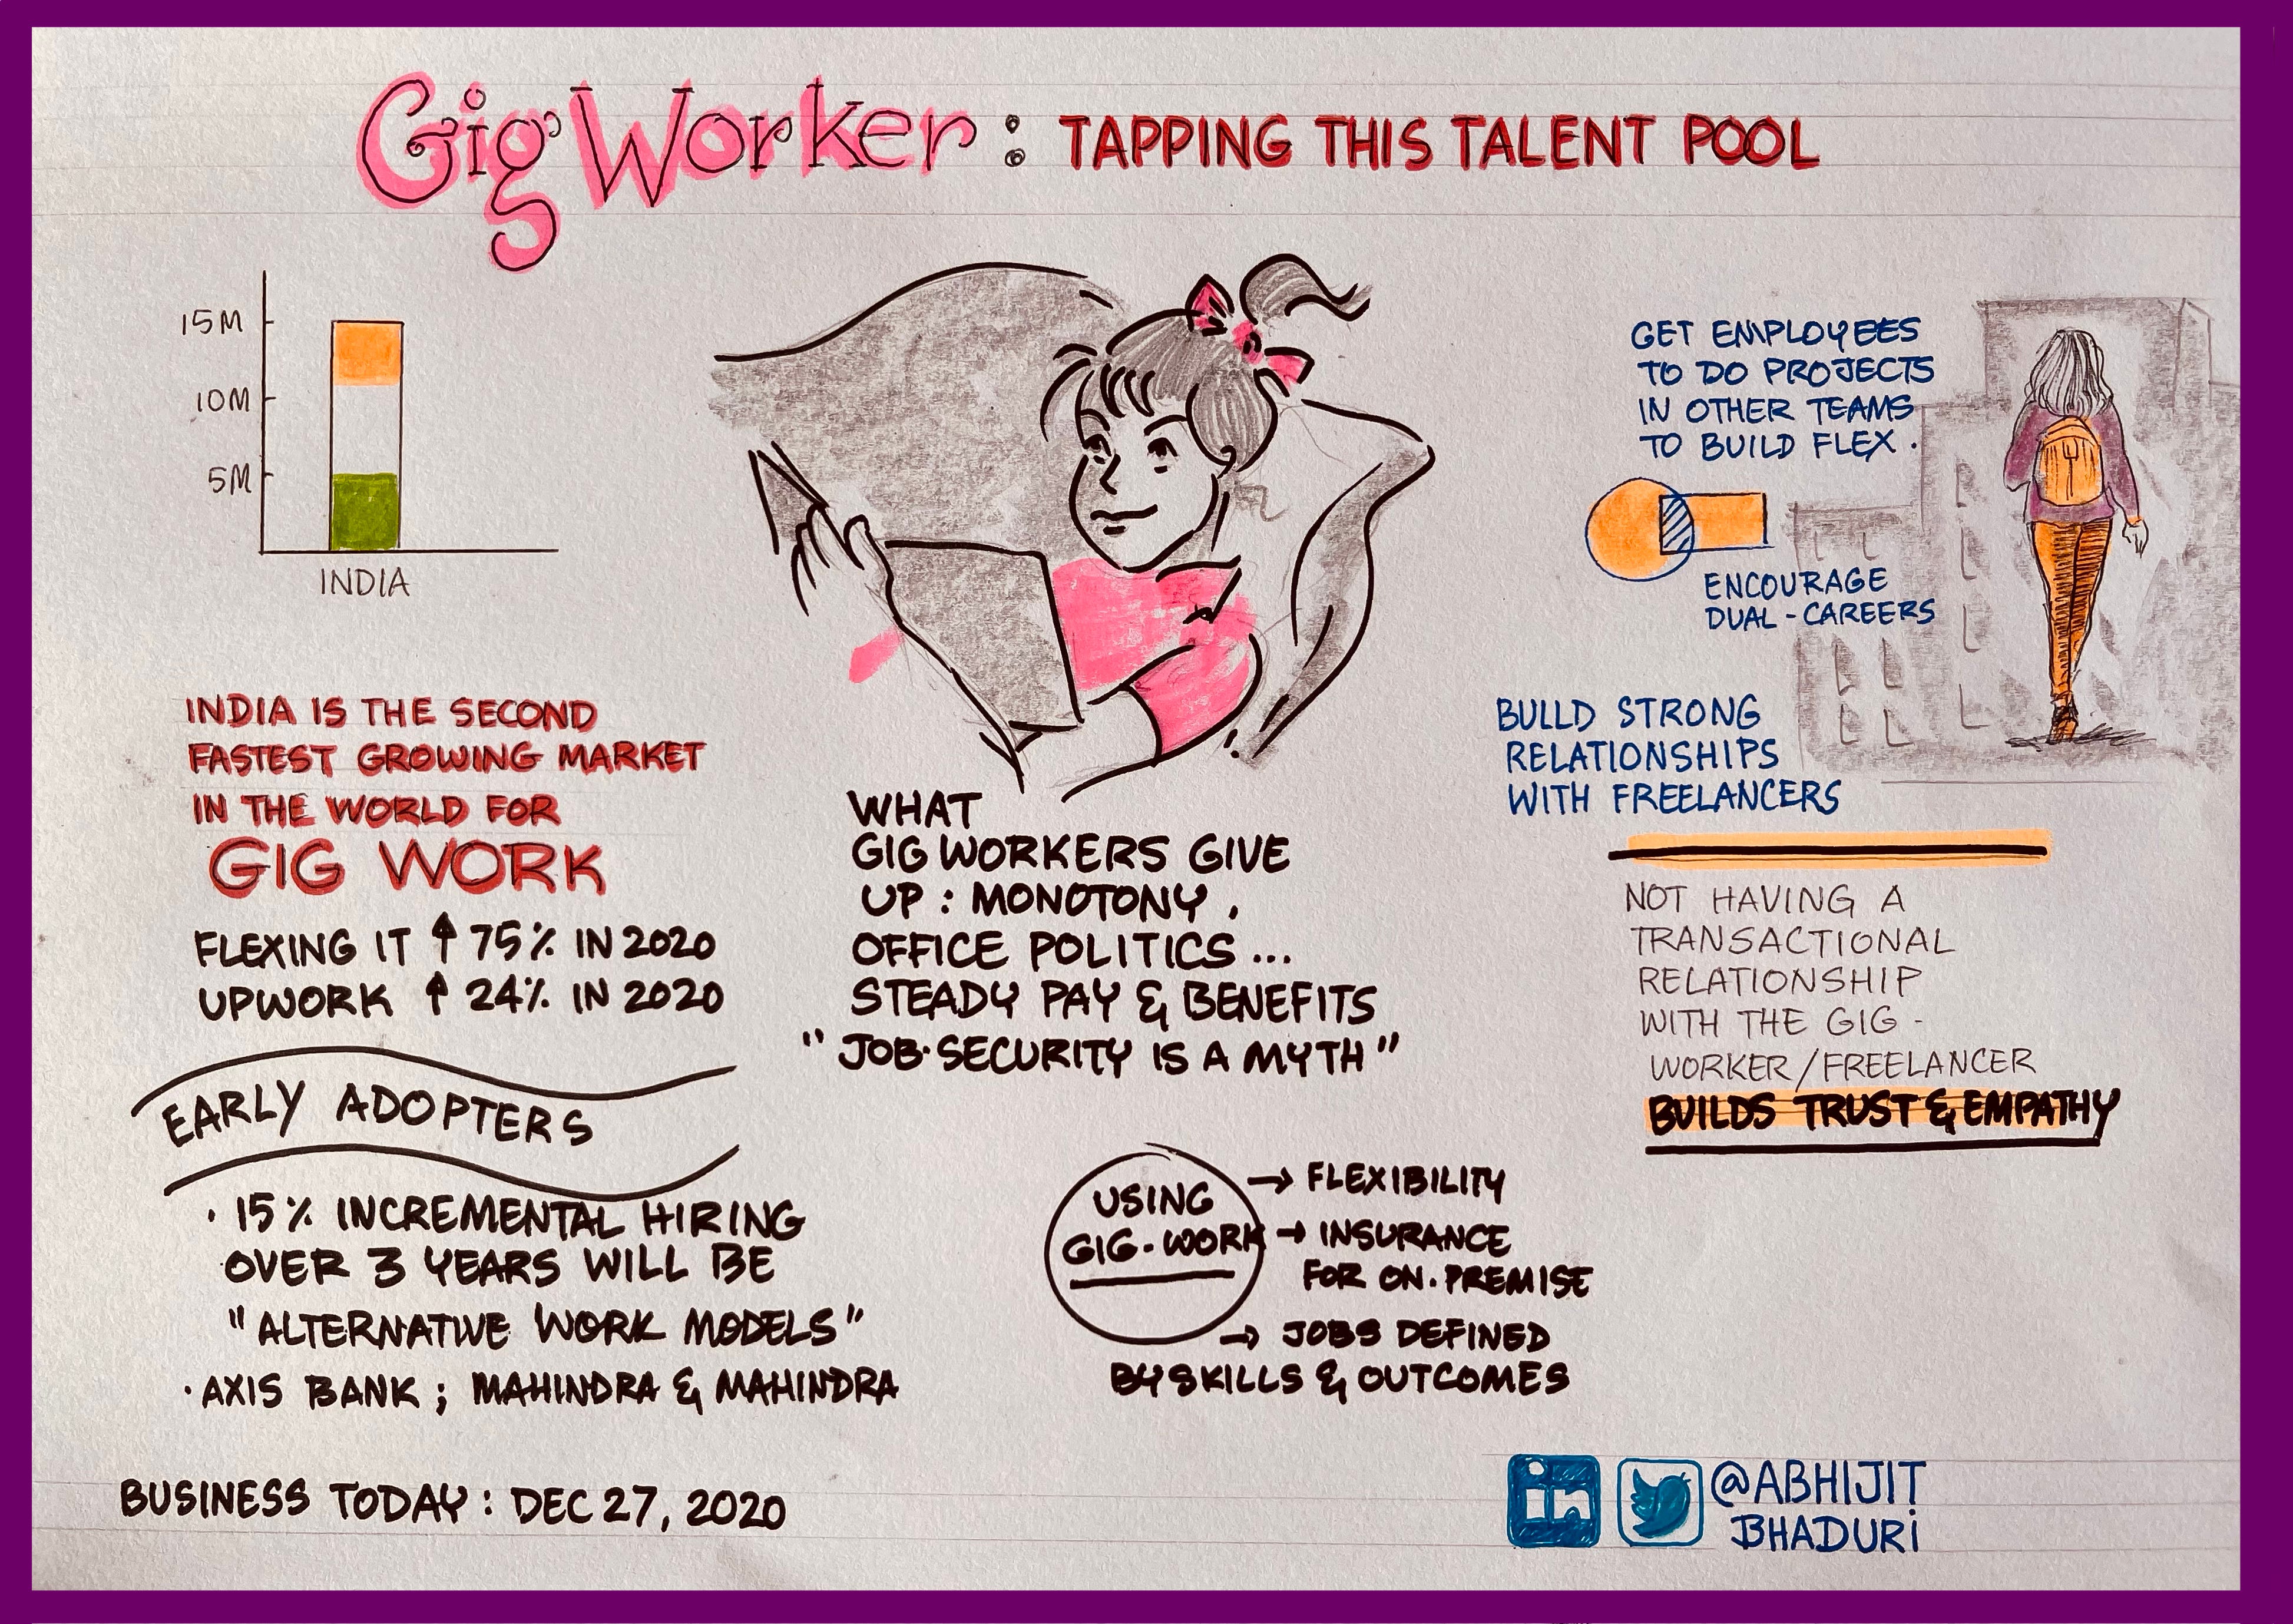 Gig Worker : TAPPING THIS TALENT POOL
15M
10M
5M
INDIA
INDIA IS THE SECOND
FASTEST GROWING MARKET
IN THE WORLD FOR
GIG WORK
FLEXING IT ↑ 75% IN 2020
UPWORK ↑ 24% IN 2020
EARLY ADOPTERS
· 15% INCREMENTAL HIRING
OVER 3 YEARS WILL BE
"ALTERNATIVE WORK MODELS"
· AXIS BANK ; MAHINDRA & MAHINDRA
BUSINESS TODAY : DEC 27, 2020
WHAT
GIG WORKERS GIVE
UP : MONOTONY ,
OFFICE POLITICS ...
STEADY PAY & BENEFITS
"JOB·SECURITY IS A MYTH"
USING
GIG·WORK
→ FLEXIBILITY
→ INSURANCE
FOR ON·PREMISE
→ JOBS DEFINED
BY SKILLS & OUTCOMES
GET EMPLOYEES
TO DO PROJECTS
IN OTHER TEAMS
TO BUILD FLEX .
ENCOURAGE
DUAL-CAREERS
BUILD STRONG
RELATIONSHIPS
WITH FREELANCERS
NOT HAVING A
TRANSACTIONAL
RELATIONSHIP
WITH THE GIG-
WORKER/FREELANCER
BUILDS TRUST & EMPATHY
in
@ABHIJIT
BHADURI